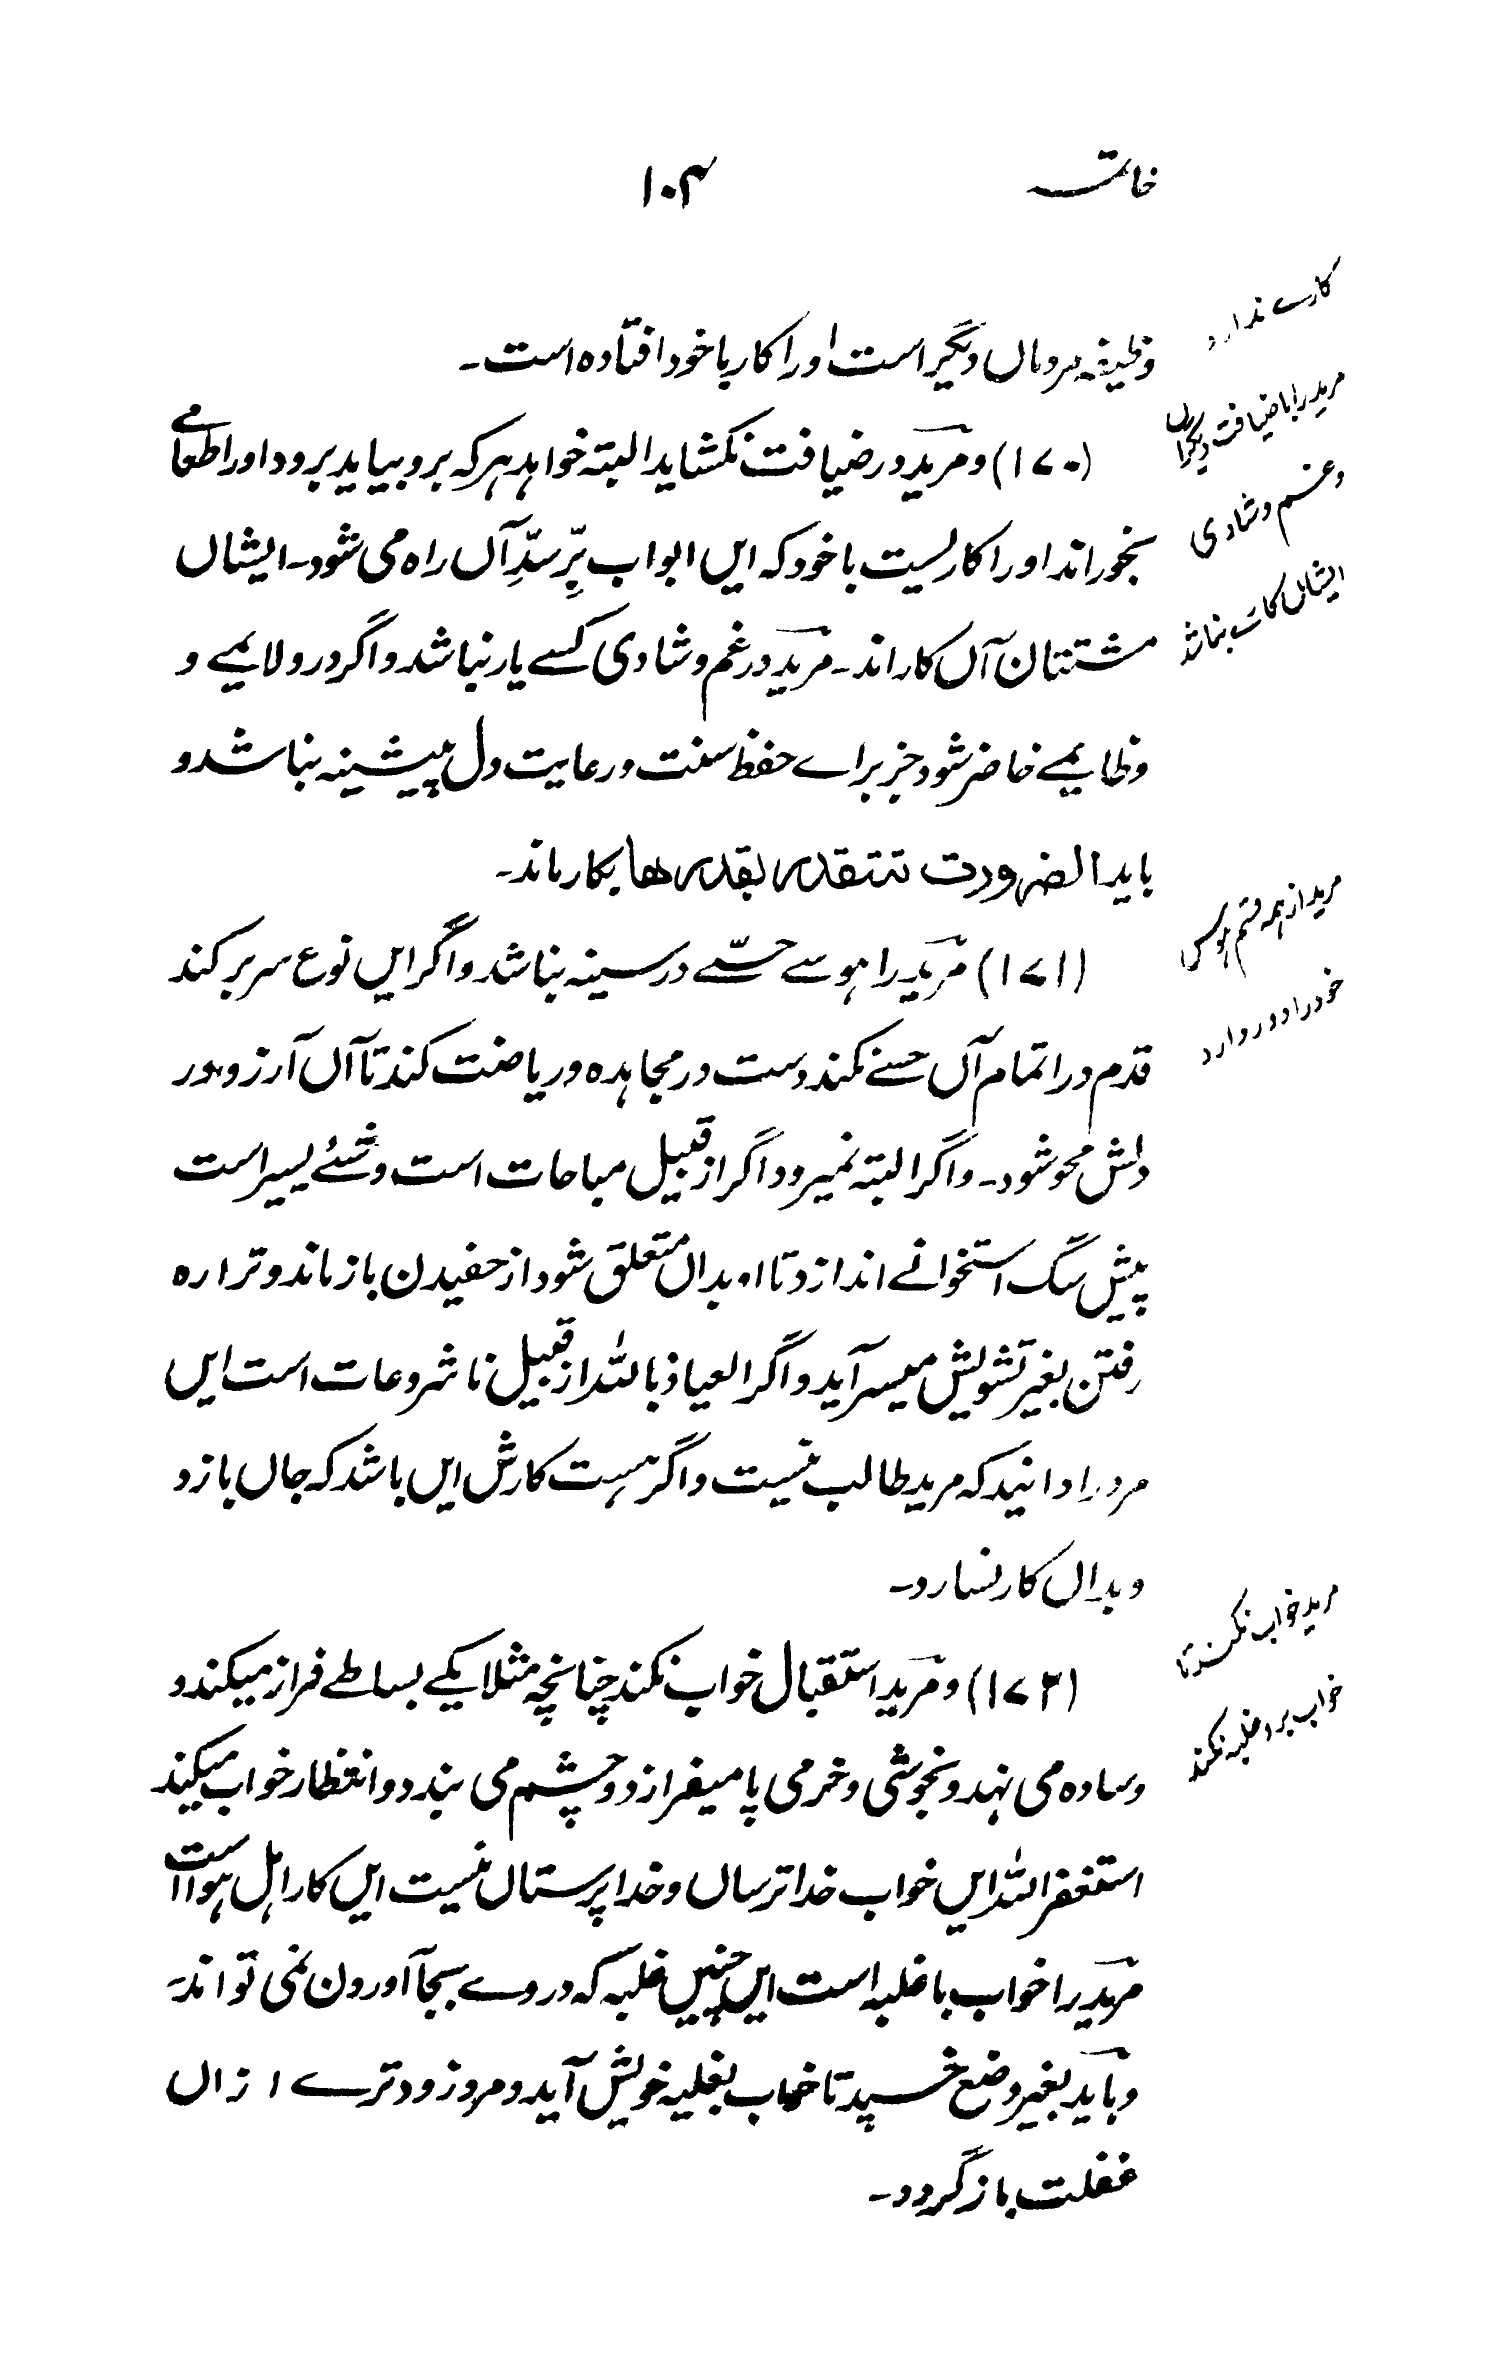 خاتمہ ۱۰۴
کارے ندارد
وظیفہ مردماں دیگر است او را کار با خود افتادہ است۔
مرید را با ضیافت دیگراں
(۱۷۰) و مرید در ضیافت نکشاید البتہ خواہد ہر کہ برو بیاید برود او را طعامے
و غم و شادی
بخوراند او را کاریست با خود کہ ایں ابواب پر سدِّ آں راہ می شود۔ ایشاں
ایشاں کارے نباشد
مشتتان آں کار اند۔ مرید در غم و شادی کسے یار نباشد و اگر در ولایمے و
وظایمے حاضر شود جز براے حفظ سنت و رعایت دل پیشینہ نباشد و
باید الضرورت تتقدر بقدرها بکار ماند۔
مرید از ہمہ قسم ہوس
(۱۷۱) مرید را ہوسے حسّے در سینہ نباشد و اگر ایں نوع سر بر کند
خود را دور دارد
قدم در اتمام آں حسے نکند دست در مجاہدہ و ریاضت کند تا آں آرزو در
دلش محو شود۔ و اگر البتہ نمیرود اگر از قبیل مباحات است و شئے یسیر است
پیش سگ استخوانے اندازد تا او بداں متعلق شود از حفیدن باز ماند و ترا رہ
رفتن بغیر تشویش میسر آید و اگر العیاذ باللہ از قبیل نا شروعات است ایں
مرد را دانید کہ مرید طالب نیست و اگر ہست کارش ایں باشد کہ جاں بازد
و بداں کار نسارد۔
مرید خواب نکند تا
(۱۷۲) و مرید استقبال خواب نکند چنانچہ مثلا یکے بساطے فراز میکند و
خواب برو غلبہ نکند
وسادہ می نہد و بخوشی و خرمی پا میفرازد و چشم می بندد و انتظار خواب میکند
استغفر اللہ ایں خواب خدا ترساں و خدا پرستاں نیست ایں کار اہل ہوا است
مرید را خواب با غلبہ است ایں چنیں غلبہ کہ در وے بجا آوردن نمی تواند
و باید بغیر وضع خسپد تا خواب بغلبہ خویش آید و مرو زود ترے ازاں
غفلت باز گردد۔